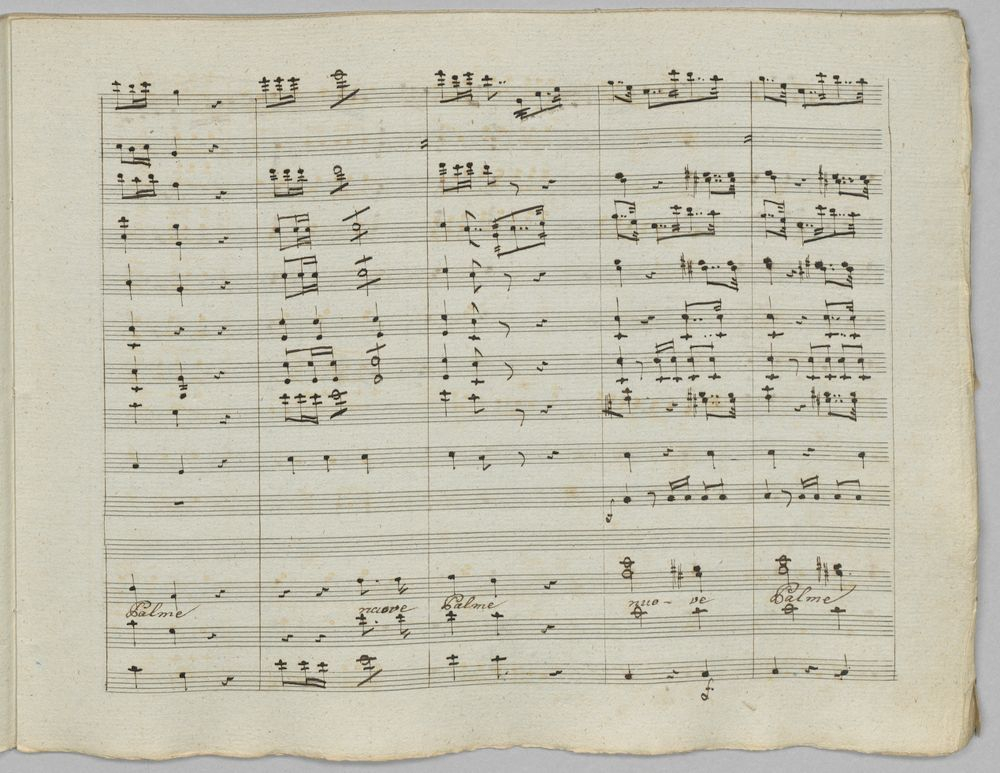 Palme nuove Palme nuo - ve Palme